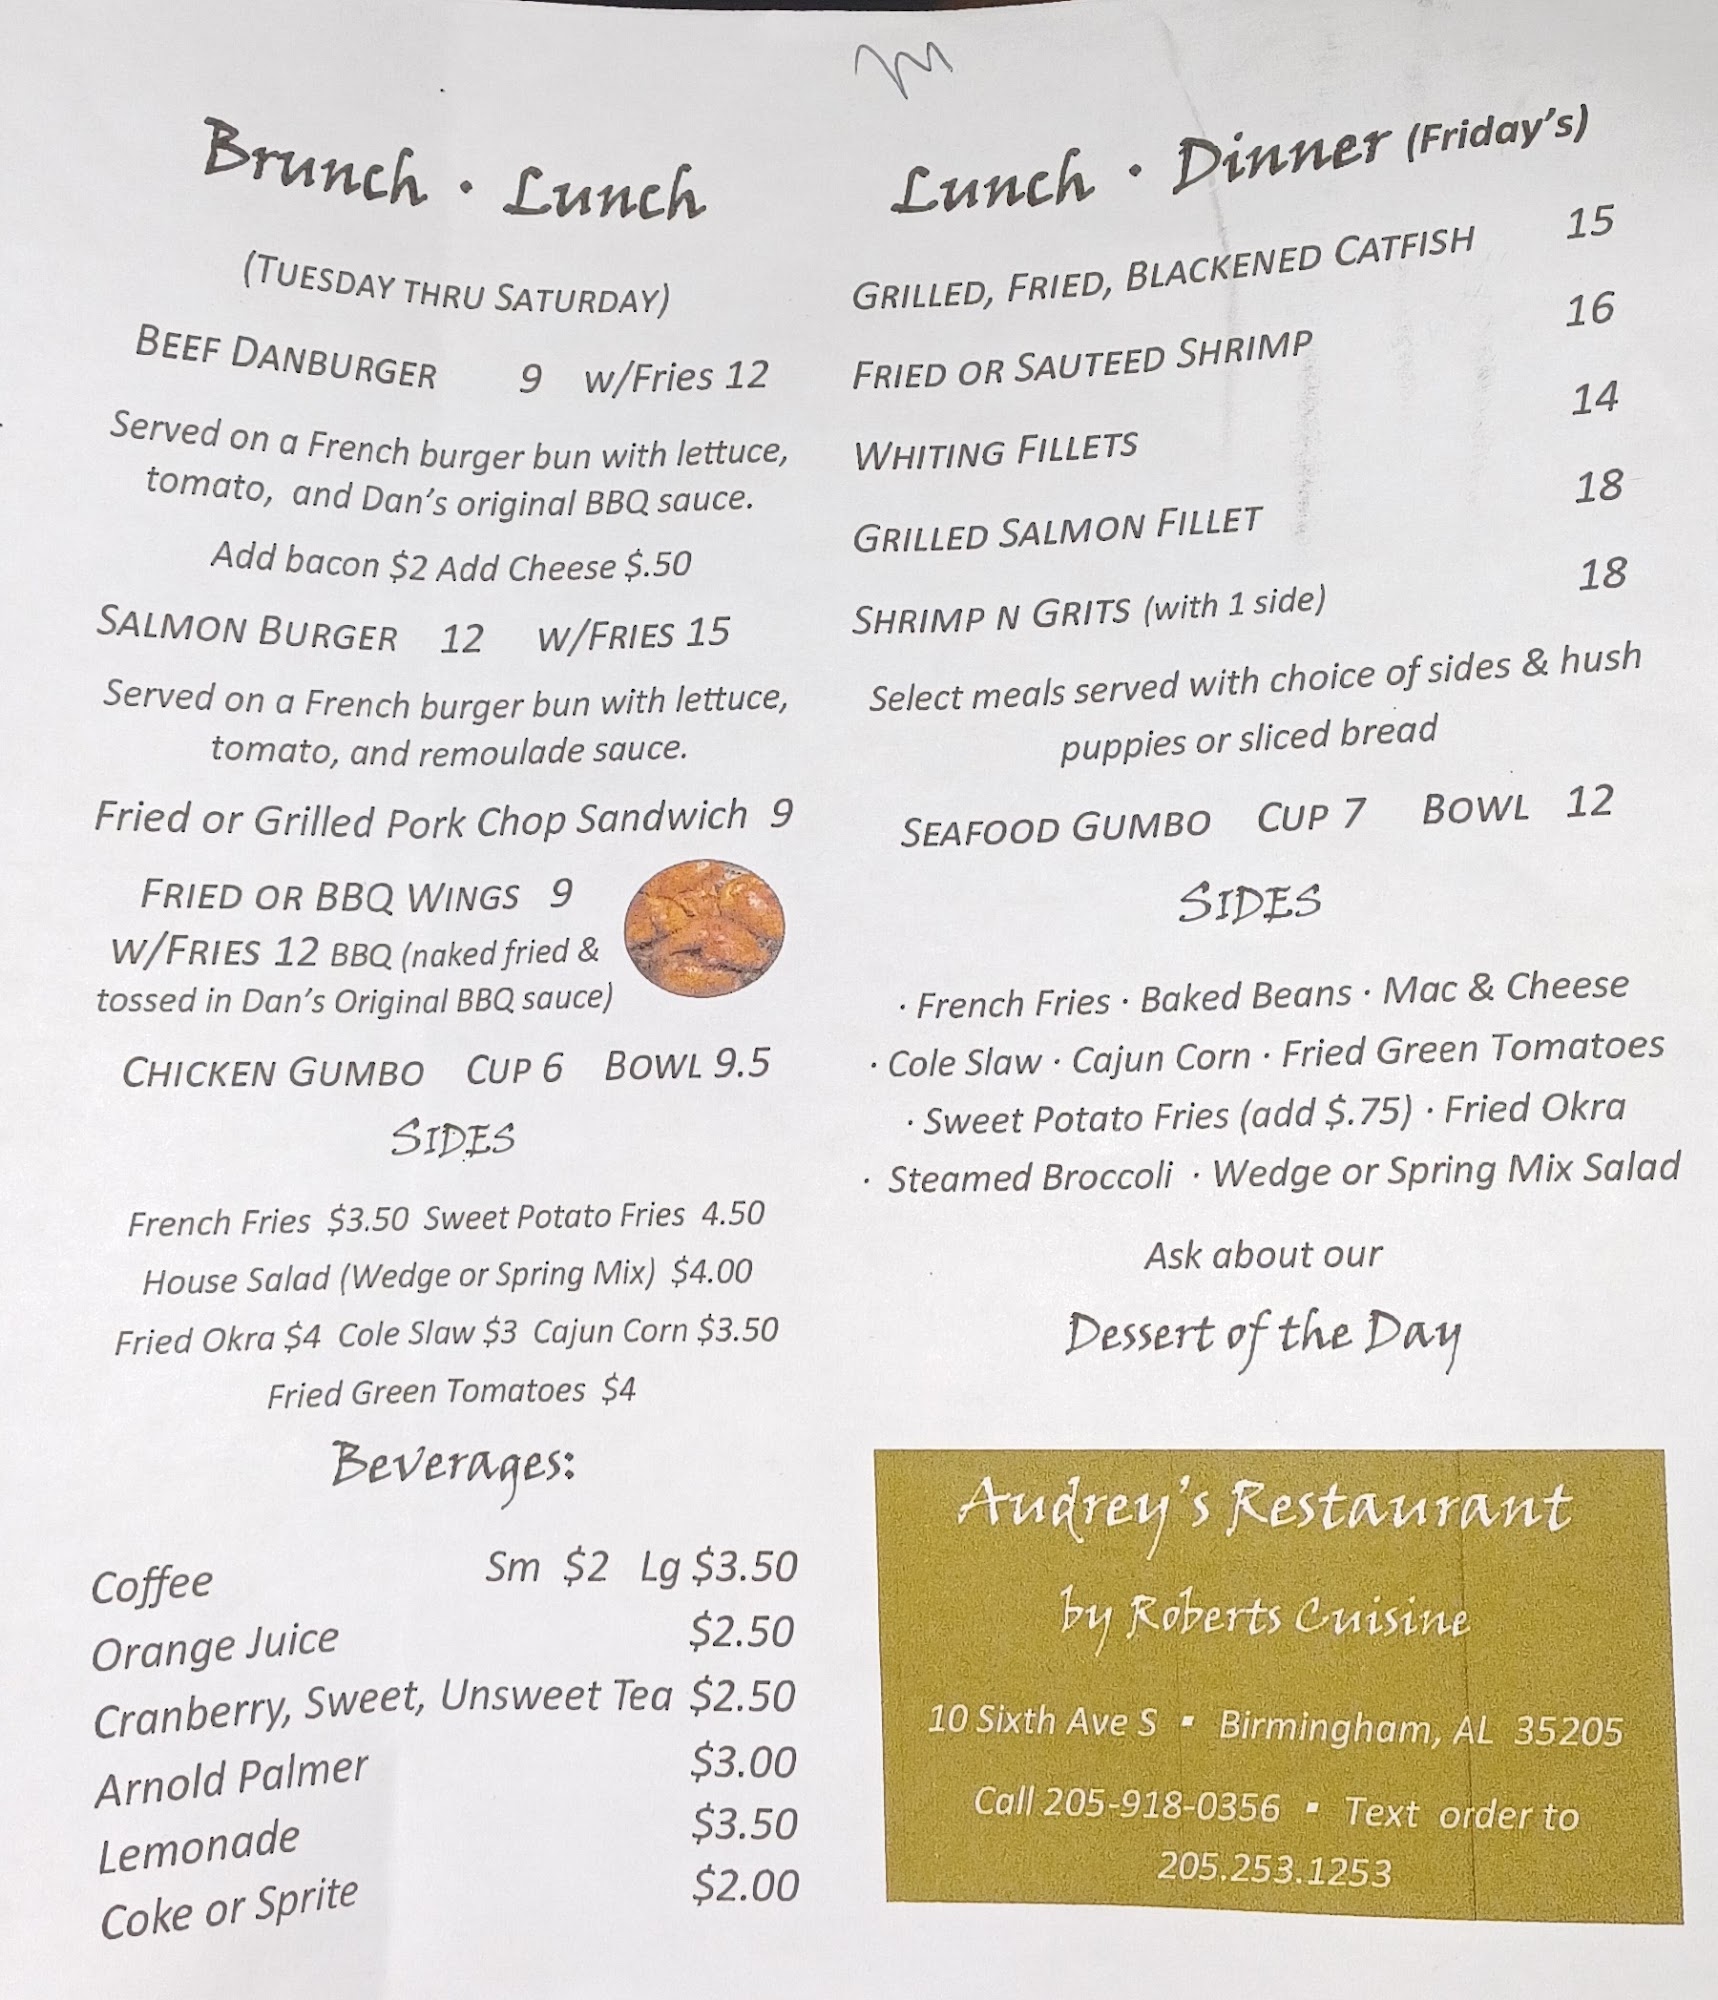 Brunch · Lunch
(TUESDAY THRU SATURDAY)
BEEF DANBURGER 9 w/Fries 12
Served on a French burger bun with lettuce,
tomato, and Dan's original BBQ sauce.
Add bacon $2 Add Cheese $.50
SALMON BURGER 12 W/FRIES 15
Served on a French burger bun with lettuce,
tomato, and remoulade sauce.
Fried or Grilled Pork Chop Sandwich 9
FRIED OR BBQ WINGS 9
W/FRIES 12 BBQ (naked fried &
tossed in Dan's Original BBQ sauce)
CHICKEN GUMBO CUP 6 BOWL 9.5
SIDES
French Fries $3.50 Sweet Potato Fries 4.50
House Salad (Wedge or Spring Mix) $4.00
Fried Okra $4 Cole Slaw $3 Cajun Corn $3.50
Fried Green Tomatoes $4
Beverages:
Coffee Sm $2 Lg $3.50
Orange Juice $2.50
Cranberry, Sweet, Unsweet Tea $2.50
Arnold Palmer $3.00
Lemonade $3.50
Coke or Sprite $2.00
Lunch · Dinner (Friday's)
GRILLED, FRIED, BLACKENED CATFISH 15
FRIED OR SAUTEED SHRIMP 16
WHITING FILLETS 14
GRILLED SALMON FILLET 18
SHRIMP N GRITS (with 1 side) 18
Select meals served with choice of sides & hush
puppies or sliced bread
SEAFOOD GUMBO CUP 7 BOWL 12
SIDES
· French Fries · Baked Beans · Mac & Cheese
· Cole Slaw · Cajun Corn · Fried Green Tomatoes
· Sweet Potato Fries (add $.75) · Fried Okra
· Steamed Broccoli · Wedge or Spring Mix Salad
Ask about our
Dessert of the Day
Audrey's Restaurant
by Roberts Cuisine
10 Sixth Ave S ▪ Birmingham, AL 35205
Call 205-918-0356 ▪ Text order to
205.253.1253